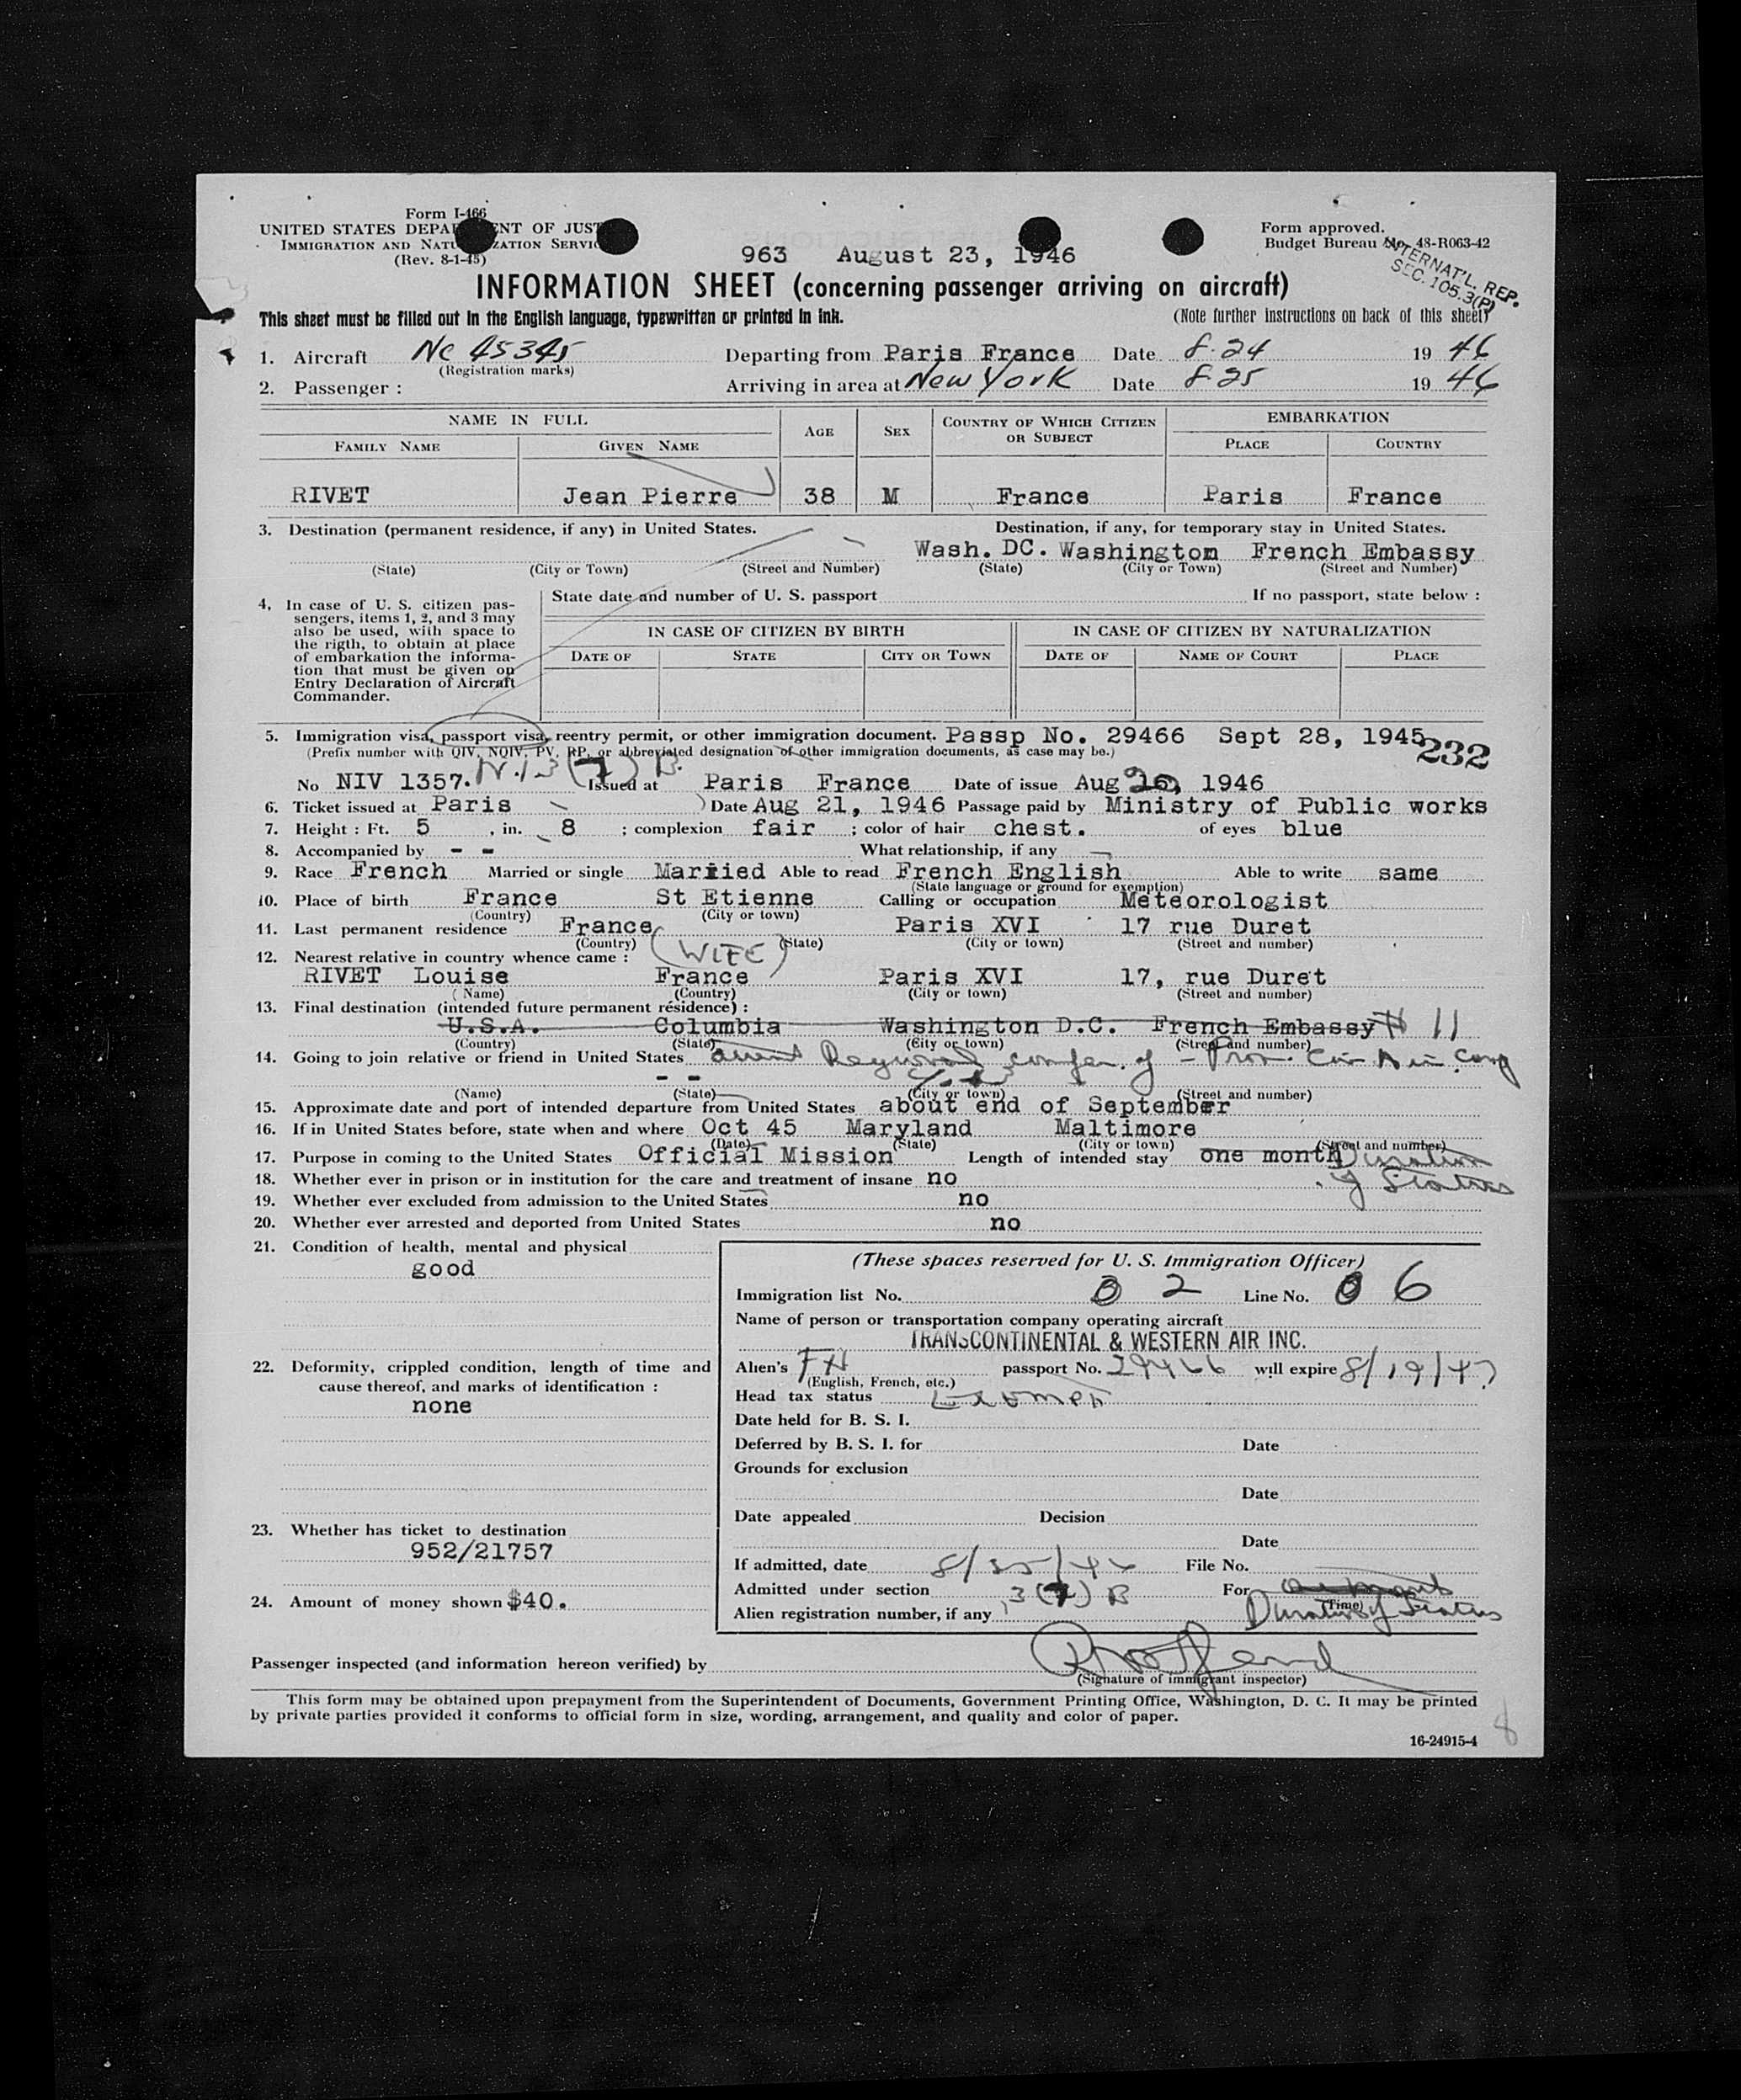 Form I-466
UNITED STATES DEPA NT OF JUST
IMMIGRATION AND NATU ZATION SERVIC
(Rev. 8-1-45)
Form approved.
Budget Bureau No. 48-R063-42
963 August 23, 1946
TERNAT'L. REP.
SEC. 105.3(P)
INFORMATION SHEET (concerning passenger arriving on aircraft)
This sheet must be filled out in the English language, typewritten or printed in ink.
(Note further instructions on back of this sheet)
1. Aircraft Nc 45345 Departing from Paris France Date 8-24 1946
(Registration marks)
2. Passenger : Arriving in area at New York Date 8-25 1946
NAME IN FULL AGE SEX COUNTRY OF WHICH CITIZEN OR SUBJECT EMBARKATION
FAMILY NAME GIVEN NAME PLACE COUNTRY
RIVET Jean Pierre 38 M France Paris France
3. Destination (permanent residence, if any) in United States. Destination, if any, for temporary stay in United States.
Wash. DC. Washington French Embassy
(State) (City or Town) (Street and Number) (State) (City or Town) (Street and Number)
4. In case of U. S. citizen pas-
sengers, items 1, 2, and 3 may
also be used, with space to
the rigth, to obtain at place
of embarkation the informa-
tion that must be given on
Entry Declaration of Aircraft
Commander.
State date and number of U. S. passport If no passport, state below :
IN CASE OF CITIZEN BY BIRTH IN CASE OF CITIZEN BY NATURALIZATION
DATE OF STATE CITY OR TOWN DATE OF NAME OF COURT PLACE
5. Immigration visa, passport visa, reentry permit, or other immigration document. Passp No. 29466 Sept 28, 1945
(Prefix number with QIV, NQIV, PV, RP, or abbreviated designation of other immigration documents, as case may be.)
232
No NIV 1357. 3(7) B. Issued at Paris France Date of issue Aug 20, 1946
6. Ticket issued at Paris Date Aug 21, 1946 Passage paid by Ministry of Public works
7. Height : Ft. 5 , in. 8 ; complexion fair ; color of hair chest. of eyes blue
8. Accompanied by - - What relationship, if any
9. Race French Married or single Married Able to read French English Able to write same
(State language or ground for exemption)
10. Place of birth France St Etienne Calling or occupation Meteorologist
(Country) (City or town)
11. Last permanent residence France Paris XVI 17 rue Duret
(Country) (State) (City or town) (Street and number)
12. Nearest relative in country whence came : (WIFE)
RIVET Louise France Paris XVI 17, rue Duret
(Name) (Country) (City or town) (Street and number)
13. Final destination (intended future permanent résidence) :
U.S.A. Columbia Washington D.C. French Embassy # 11
(Country) (State) (City or town) (Street and number)
14. Going to join relative or friend in United States attend Regional confer. of
- -
(Name) (State) (City or town) (Street and number)
15. Approximate date and port of intended departure from United States about end of September
16. If in United States before, state when and where Oct 45 Maryland Maltimore
(Date) (State) (City or town) (Street and number)
17. Purpose in coming to the United States Official Mission Length of intended stay one month Duration
of Status
18. Whether ever in prison or in institution for the care and treatment of insane no
19. Whether ever excluded from admission to the United States no
20. Whether ever arrested and deported from United States no
21. Condition of health, mental and physical
good
22. Deformity, crippled condition, length of time and
cause thereof, and marks of identification :
none
23. Whether has ticket to destination
952/21757
24. Amount of money shown $40.
(These spaces reserved for U. S. Immigration Officer)
Immigration list No. 0 2 Line No. 0 6
Name of person or transportation company operating aircraft
TRANSCONTINENTAL & WESTERN AIR INC.
Alien's FH passport No. 29466 will expire 8/19/47
(English, French, etc.)
Head tax status Exempt
Date held for B. S. I.
Deferred by B. S. I. for Date
Grounds for exclusion
Date
Date appealed Decision
Date
If admitted, date 8/25/46 File No.
Admitted under section 3(7) B For
(Time)
Alien registration number, if any Duration of Status
Passenger inspected (and information hereon verified) by
(Signature of immigrant inspector)
This form may be obtained upon prepayment from the Superintendent of Documents, Government Printing Office, Washington, D. C. It may be printed
by private parties provided it conforms to official form in size, wording, arrangement, and quality and color of paper.
16-24915-4
8